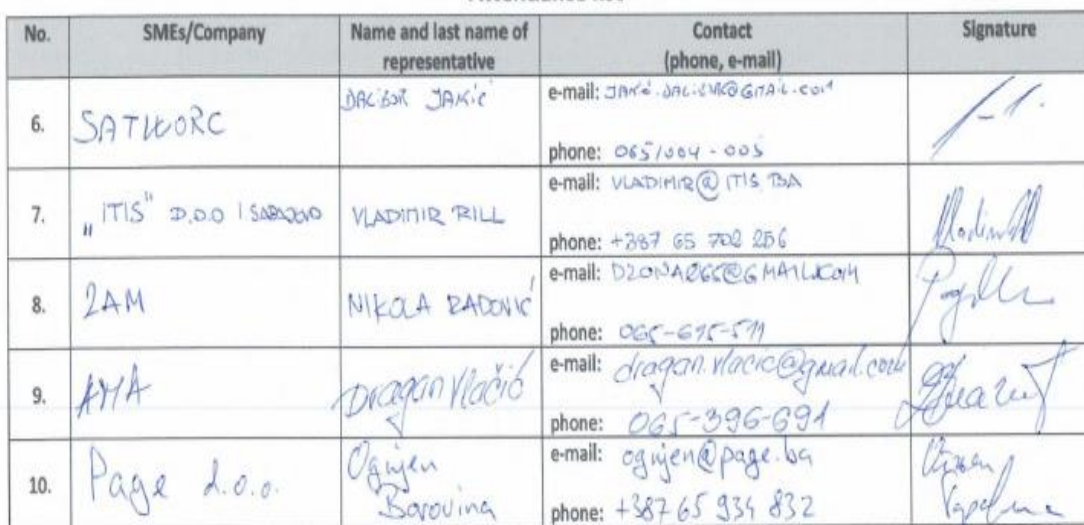 No. SMEs/Company Name and last name of representative Contact (phone, e-mail) Signature
6. SATWORC DALIBOR JAKIĆ e-mail:
phone: 065/004-005
7. „ITIS" D.O.O I SARAJEVO VLADIMIR RILL e-mail: VLADIMIR@ITIS.BA
phone: +387 65 702 256
8. 2AM NIKOLA RADOVIĆ e-mail:
phone: 065-615-511
9. AMA Dragan Vlačić e-mail: dragan.vlacic@gmail.com
phone: 065-396-691
10. Page d.o.o. Ognjen Borovina e-mail: ognjen@page.ba
phone: +387 65 934 832